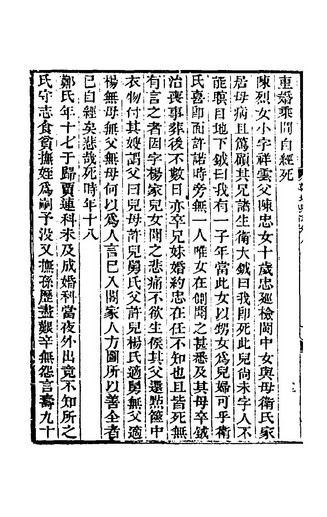 重婚乘間自經死
陳烈女小字祥雲父陳忠女十歲忠廵檢閩中女與母衛氏家
居母病且篤顧其兄諸生衛大鉞曰我卽死此兒尙未字人不
能瞑目地下鉞曰我有一子年當此女以甥女爲兒婦可乎衛
氏喜卽面許諾時旁無一人唯女在側聞之甚悉及其母卒鉞
治喪事葬後不數日亦卒兒妹婚約忠在任不知也且皆死無
有言之者因字楊家兒女聞之悲痛不欲生俟其父還點篋中
衣物付其嫂謂父曰兒母許兒舅氏父許兒楊氏適舅無父適
楊無母無父無母何以爲人言已入閣家人方圖所以善全者
已自經矣悲哉死時年十八
鄭氏年十七于歸賈蓮科未及成婚科當夜外出竟不知所之
氏守志食貧撫姪爲嗣予沒又撫孫歷盡艱辛無怨言壽九十